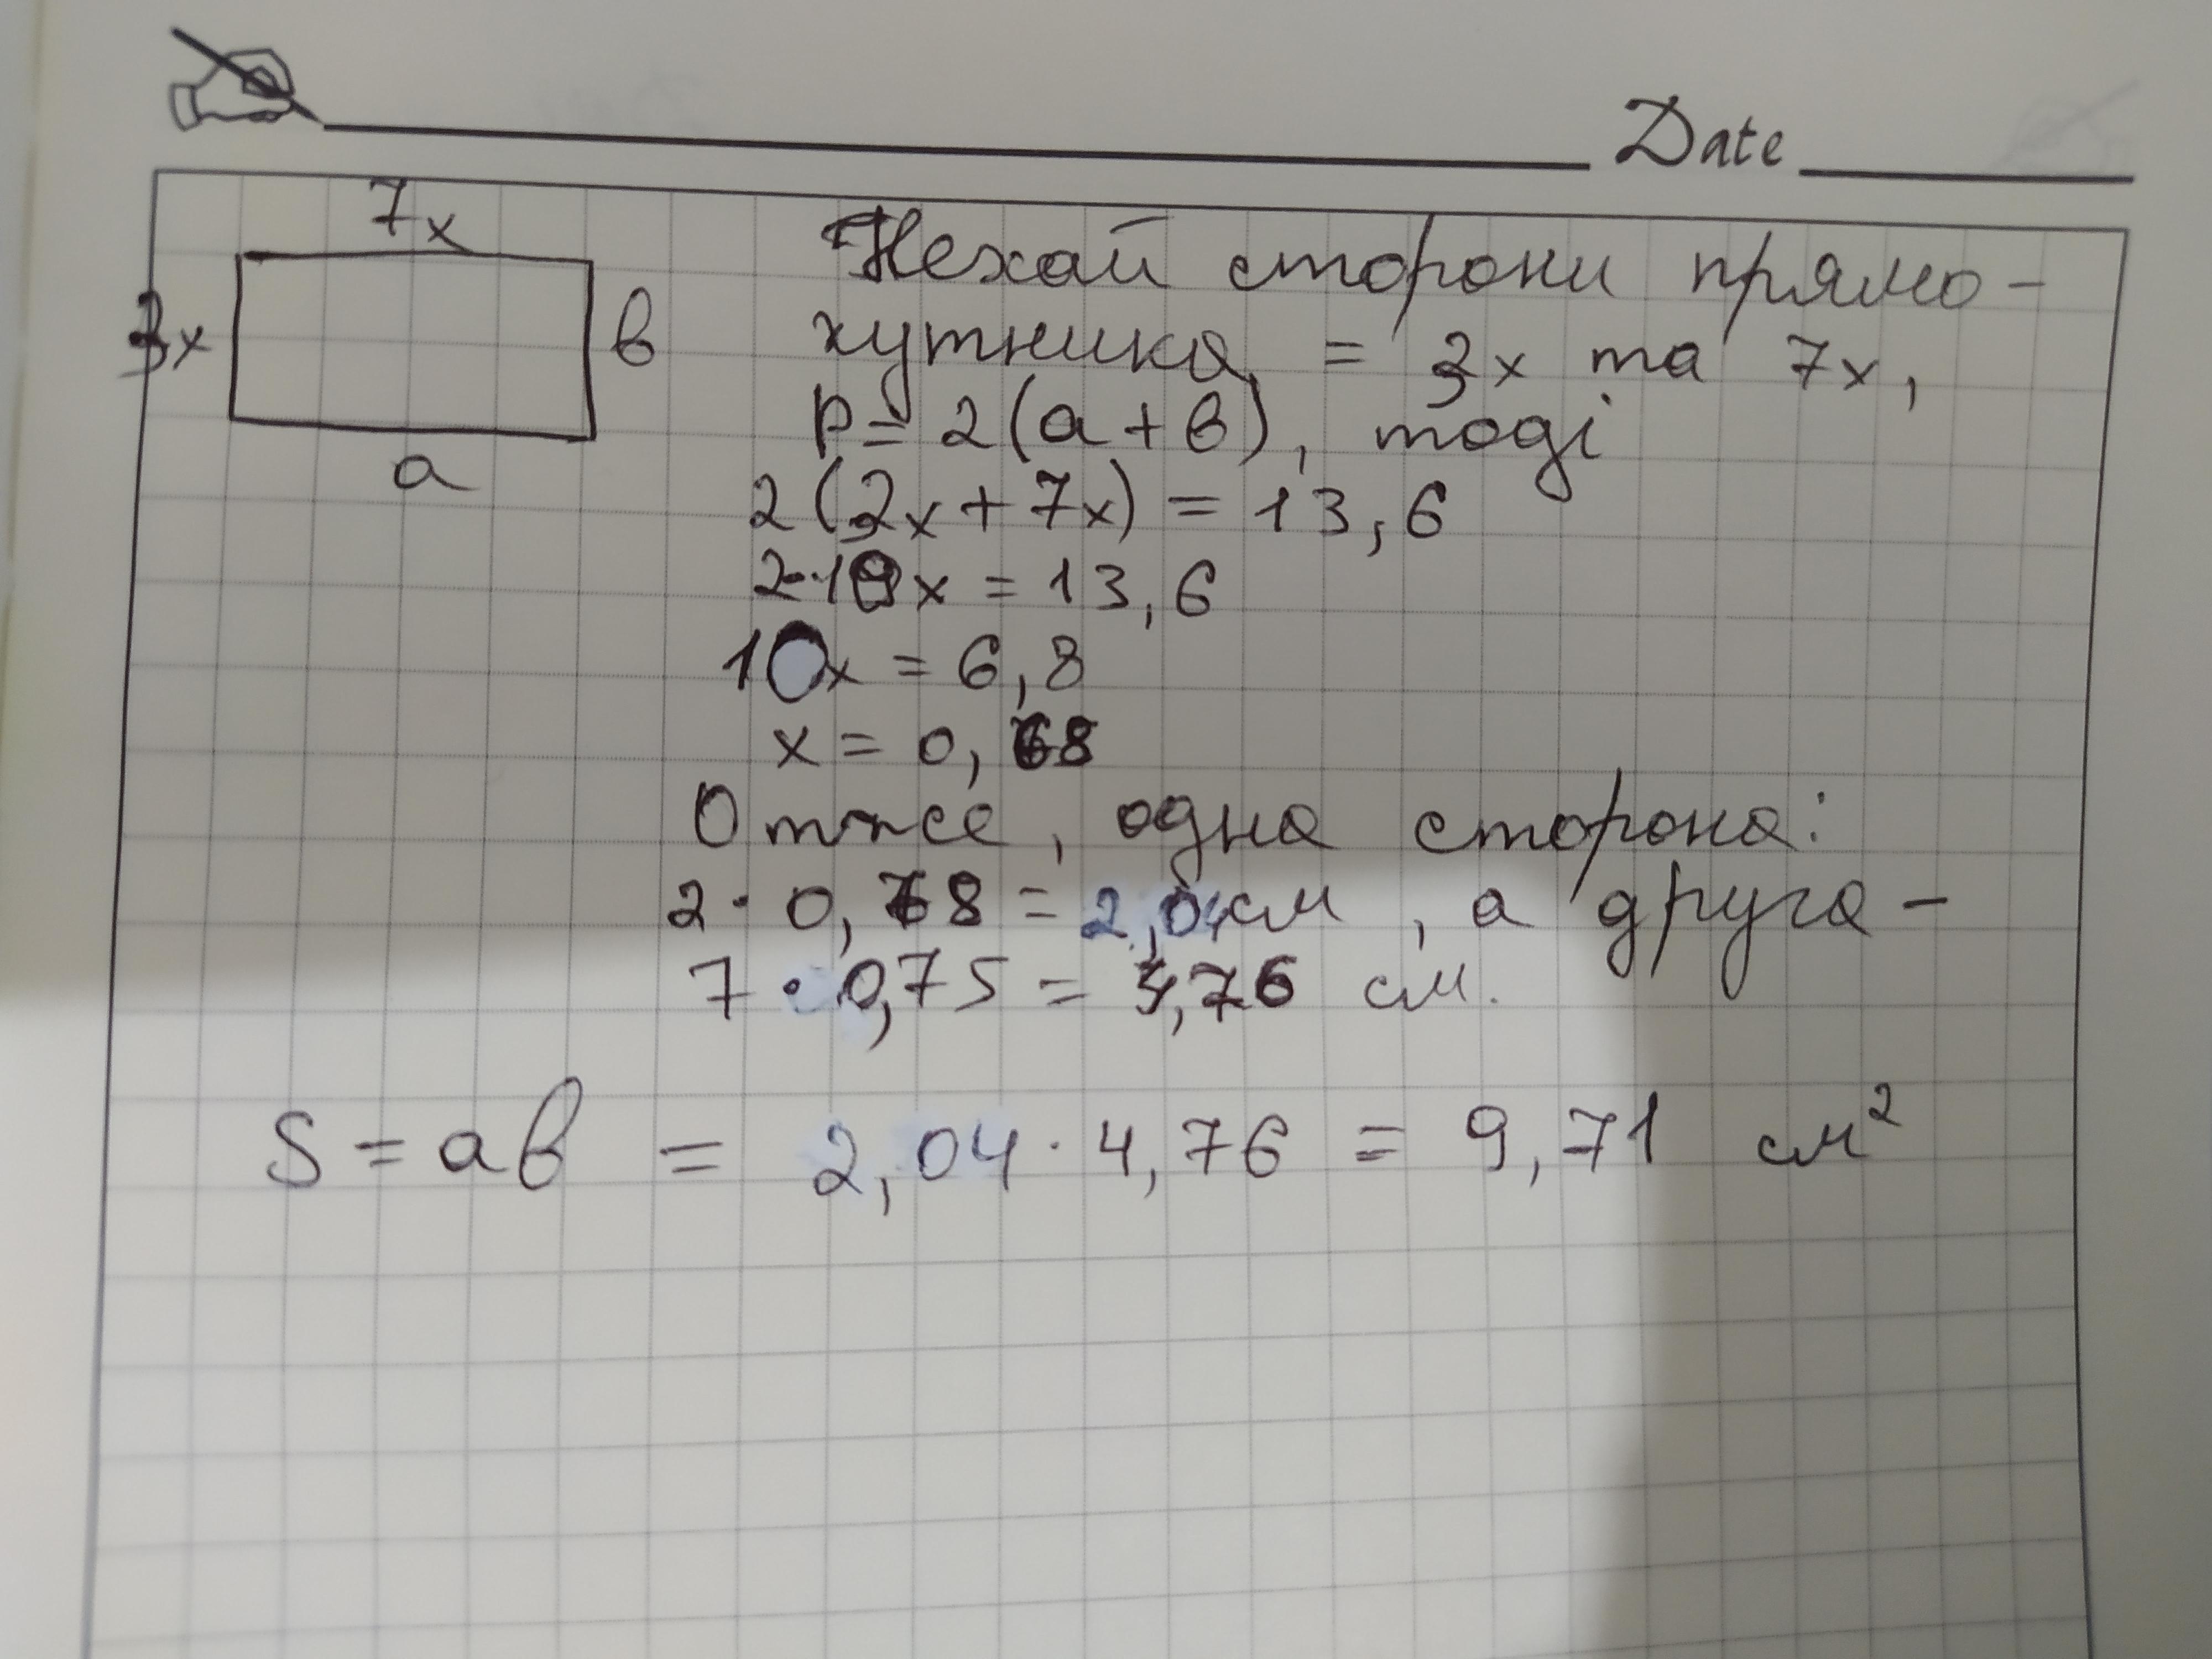 Date
7x
3x
в
a
Нехай сторони прямо-
кутника = 3x та 7x,
P = 2(a+в), тоді
2(3x+7x) = 13,6
2·10x = 13,6
10x = 6,8
x = 0,68
Отже, одна сторона:
2· 0,68 = 2,04см, а друга -
7·0,75 = 4,76 см.
S = aв = 2,04·4,76 = 9,71 см²